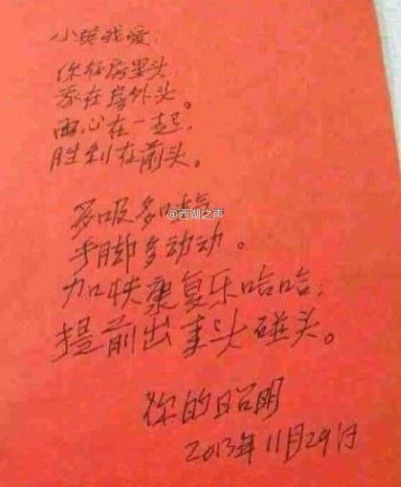 小英我爱：
你在房里头，
我在房外头。
两心在一起，
胜利在前头。
多吸多吐气
手脚多动动。
加快康复乐哈哈；
提前出来头碰头。
你的昭明
2013年11月29日
@西湖之声